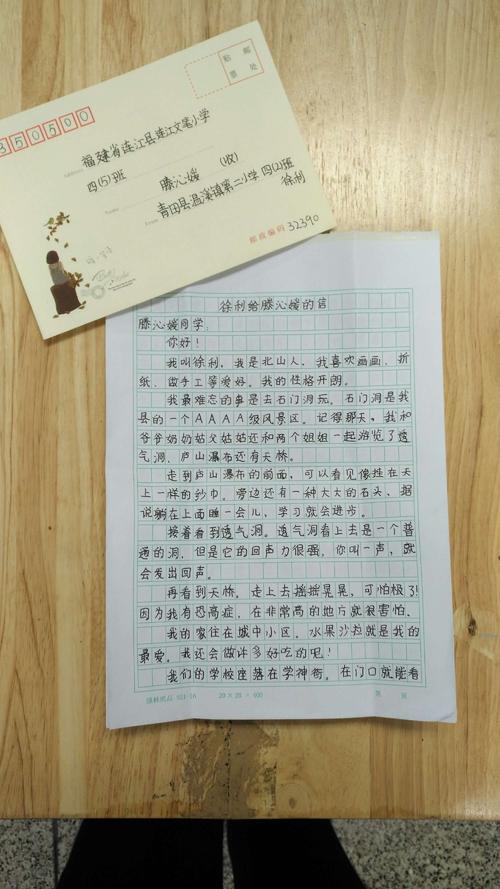 350500
贴 邮
票 处
福建省连江县连江文笔小学
Address
四(5)班 滕沁媛 (收)
Name
青田县温溪镇第二小学 四(2)班
From
徐利
邮政编码 32390
徐利给滕沁媛的信
滕沁媛同学:
你好!
我叫徐利,我是北山人,我喜欢画画、折
纸、做手工等爱好。我的性格开朗。
我最难忘的事是去石门洞玩。石门洞是我
县的一个AAAA级风景区。记得那天,我和
爷爷奶奶姑父姑姑还和两个姐姐一起游览了透
气洞、庐山瀑布还有天桥。
走到庐山瀑布的前面,可以看见像挂在天
上一样的纱巾。旁边还有一种大大的石头、据
说躺在上面睡一会儿,学习就会进步。
接着看到透气洞。透气洞看上去是一个普
通的洞,但是它的回声力很强,你叫一声,就
会发出回声。
再看到天桥。走上去摇摇晃晃,可怕极了!
因为我有恐高症,在非常高的地方就很害怕、
我的家住在城中小区。水果沙拉就是我的
最爱。我还会做许多好吃的呢!
我们的学校座落在学神街。在门口就能看
20×20=400
第 页